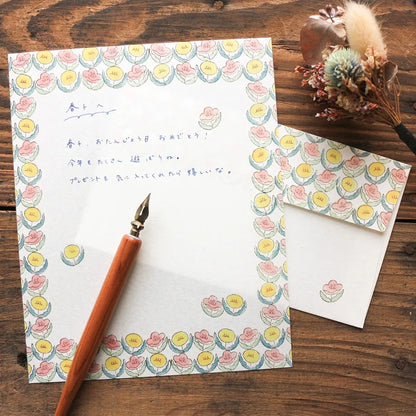 春千へ
春千、おたんじょう日 おめでとう！
今年もたくさん 遊ぼうね。
プレゼントも 気に入ってくれたら 嬉しいな。